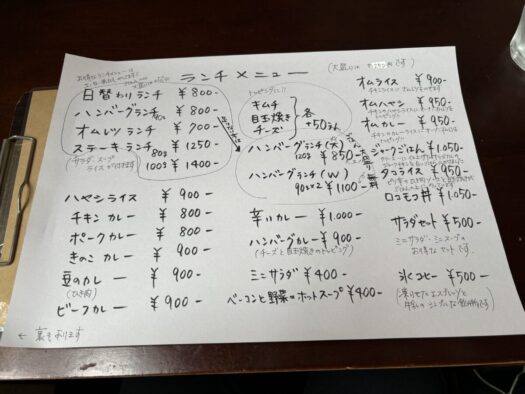 ランチメニュー
(大盛りは
です)
日替わりランチ ¥800-
ハンバーグランチ ¥800-
オムレツ ランチ ¥700-
ステーキ ランチ 80g ¥1250-
100g ¥1400-
サラダ、スープ
ライスが付きます
トッピングに!!
キムチ
目玉焼き
チーズ
各+50-
ハンバーグランチ(大)
120g ¥850-
ハンバーグランチ(W)
90g×2 ¥1100-
ハヤシライス ¥900-
チキン カレー ¥800-
ポーク カレー ¥800-
きのこ カレー ¥900-
豆のカレー ¥900-
(ひき肉)
ビーフカレー ¥900-
辛いカレー ¥1.000-
ハンバーグカレー ¥900-
(チーズと目玉焼きのトッピング)
ミニサラダ ¥400-
ベーコンと野菜のホットスープ ¥400-
オムライス ¥900-
オムハヤシ ¥950-
オムカレー ¥950-
ジャークごはん ¥1.050-
タコライス ¥950-
ロコモコ丼 ¥1.050-
サラダセット ¥500-
ミニサラダ・ミニスープの
お得なセットです
氷コーヒー ¥500-
← 裏もあります